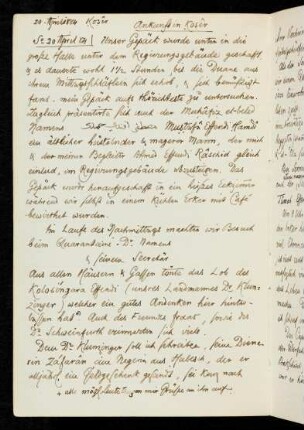 20. April 1884 Kosêr
Ankunft in Kosêr
So 20 April 84 | Unser Gepäck wurde unten in die
große Halle unter dem Regierungsgebäude geschafft,
& es dauerte wohl 1½ Stunden bis die Douane aus
ihrem Mittagsschläfchen sich erhob, & sich bemüßigt
fand, mein Gepäck aufs
Zugleich präsentirte sich auch der Muhâfiz el-beled
Namens Mustafâ Effendi Hamdi
ein ältlicher & magerer Mann, der mich
& den meinen Begleiter Ahmed Effendi Râschid gleich
einlud, im Regierungsgebäude abzusteigen. Das
Gepäck wurde heraufgeschafft in ein hübsches
während wir selbst in einem kühlen Erker mit Café
bewirthet wurden.
Im Laufe des Nachmittags machten wir Besuch
beim Quarantaine-Dr. Namens
& seinem Secretär
Aus allen Häusern & Gassen tönte das Lob des
Effendi (unsres Landsmannes Dr. Klun-
zinger) welcher ein gutes Andenken hier hinter-
lassen hat. Auch des Freundes
Dr. Schweinfurth erinnerten sich viele.
Dem Dr. Klunzinger soll ich schreiben, seine Diene-
rin Zafarân eine Negerin aus Habesch, der er
alljährl. ein Geldgeschenk gesandt, sei krank
& trug mir Grüße an ihn auf.